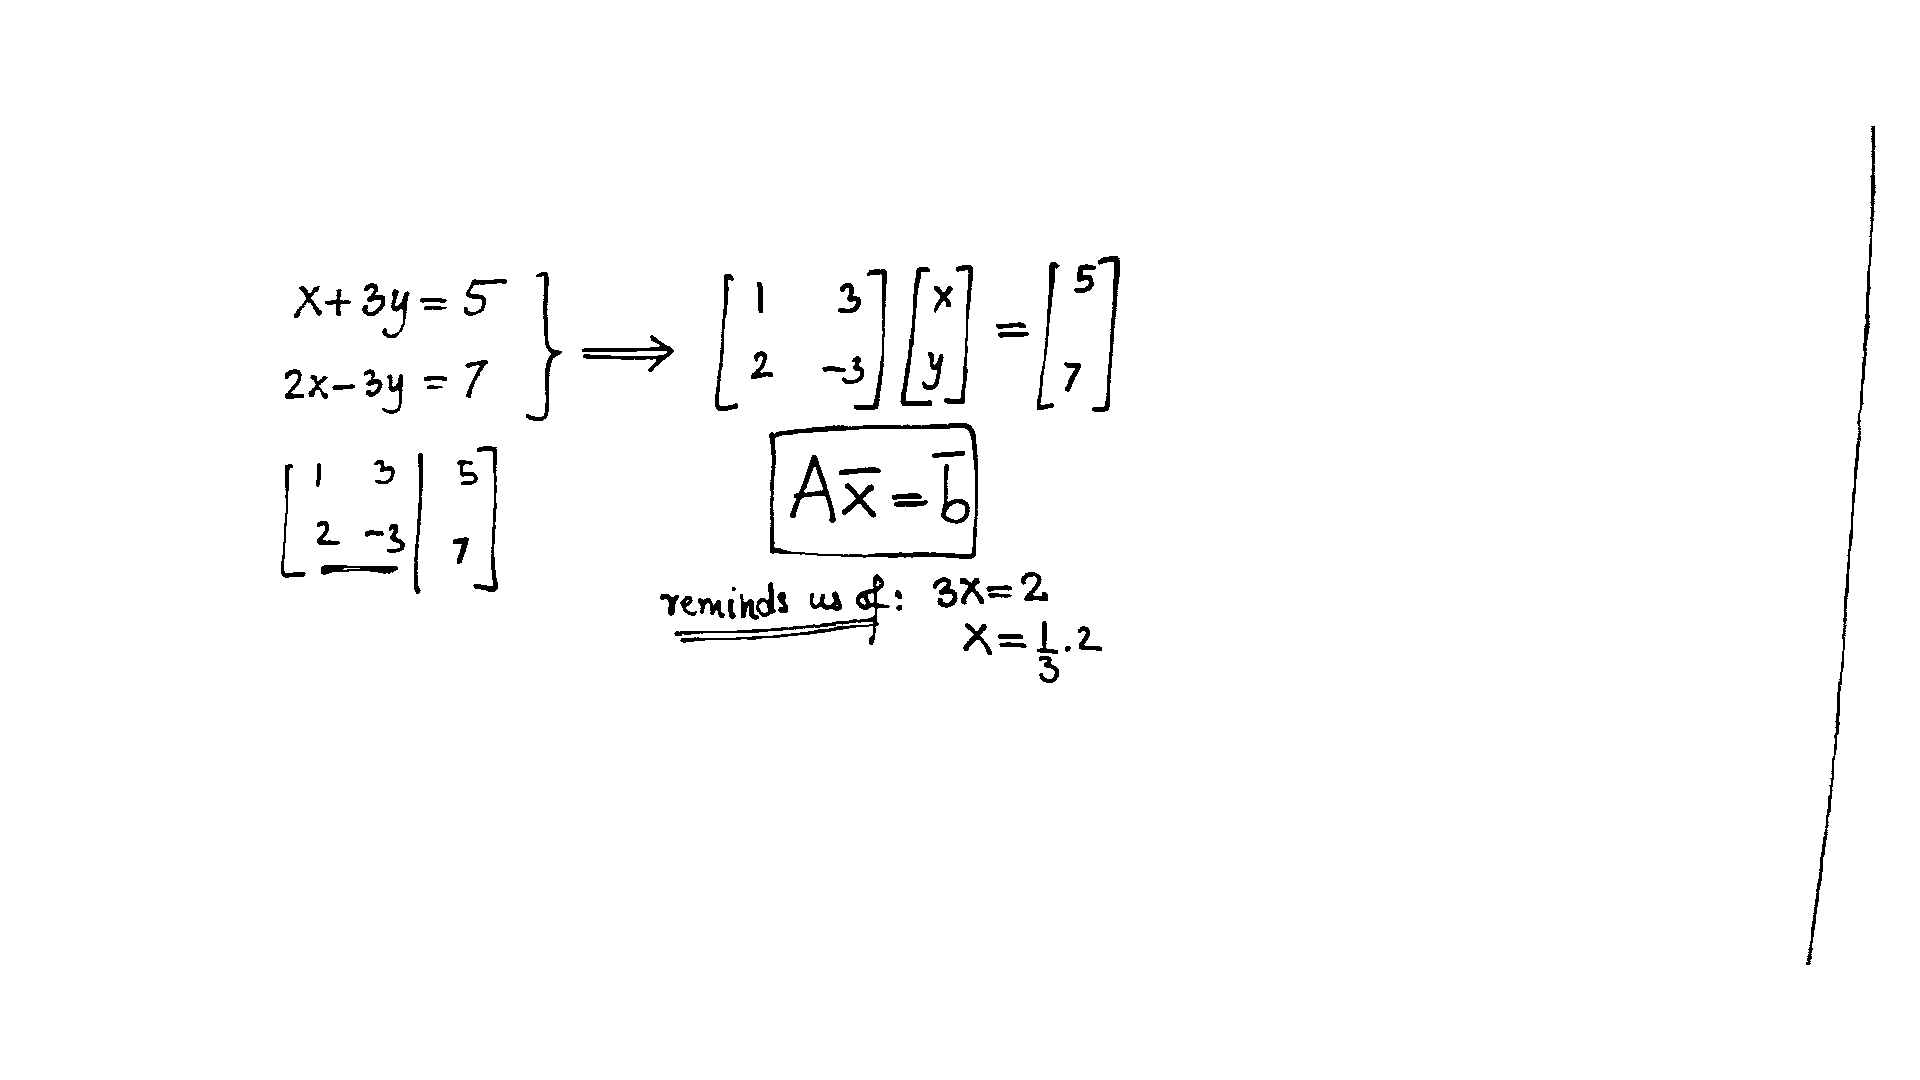 x+3y=5
2x-3y=7
} ⟹ [1 3; 2 -3] [x; y] = [5; 7]
[1 3 | 5; 2 -3 | 7]
Ax̅=b̅
reminds us of: 3x=2
x=1/3.2